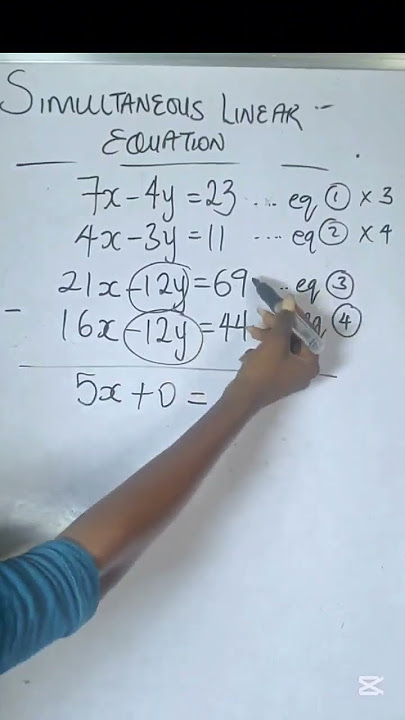 SIMULTANEOUS LINEAR
EQUATION
7x - 4y = 23 .... eq ① × 3
4x - 3y = 11 .... eq ② × 4
21x - 12y = 69 .. eq ③
- 16x - 12y = 44 ④
5x + 0 =